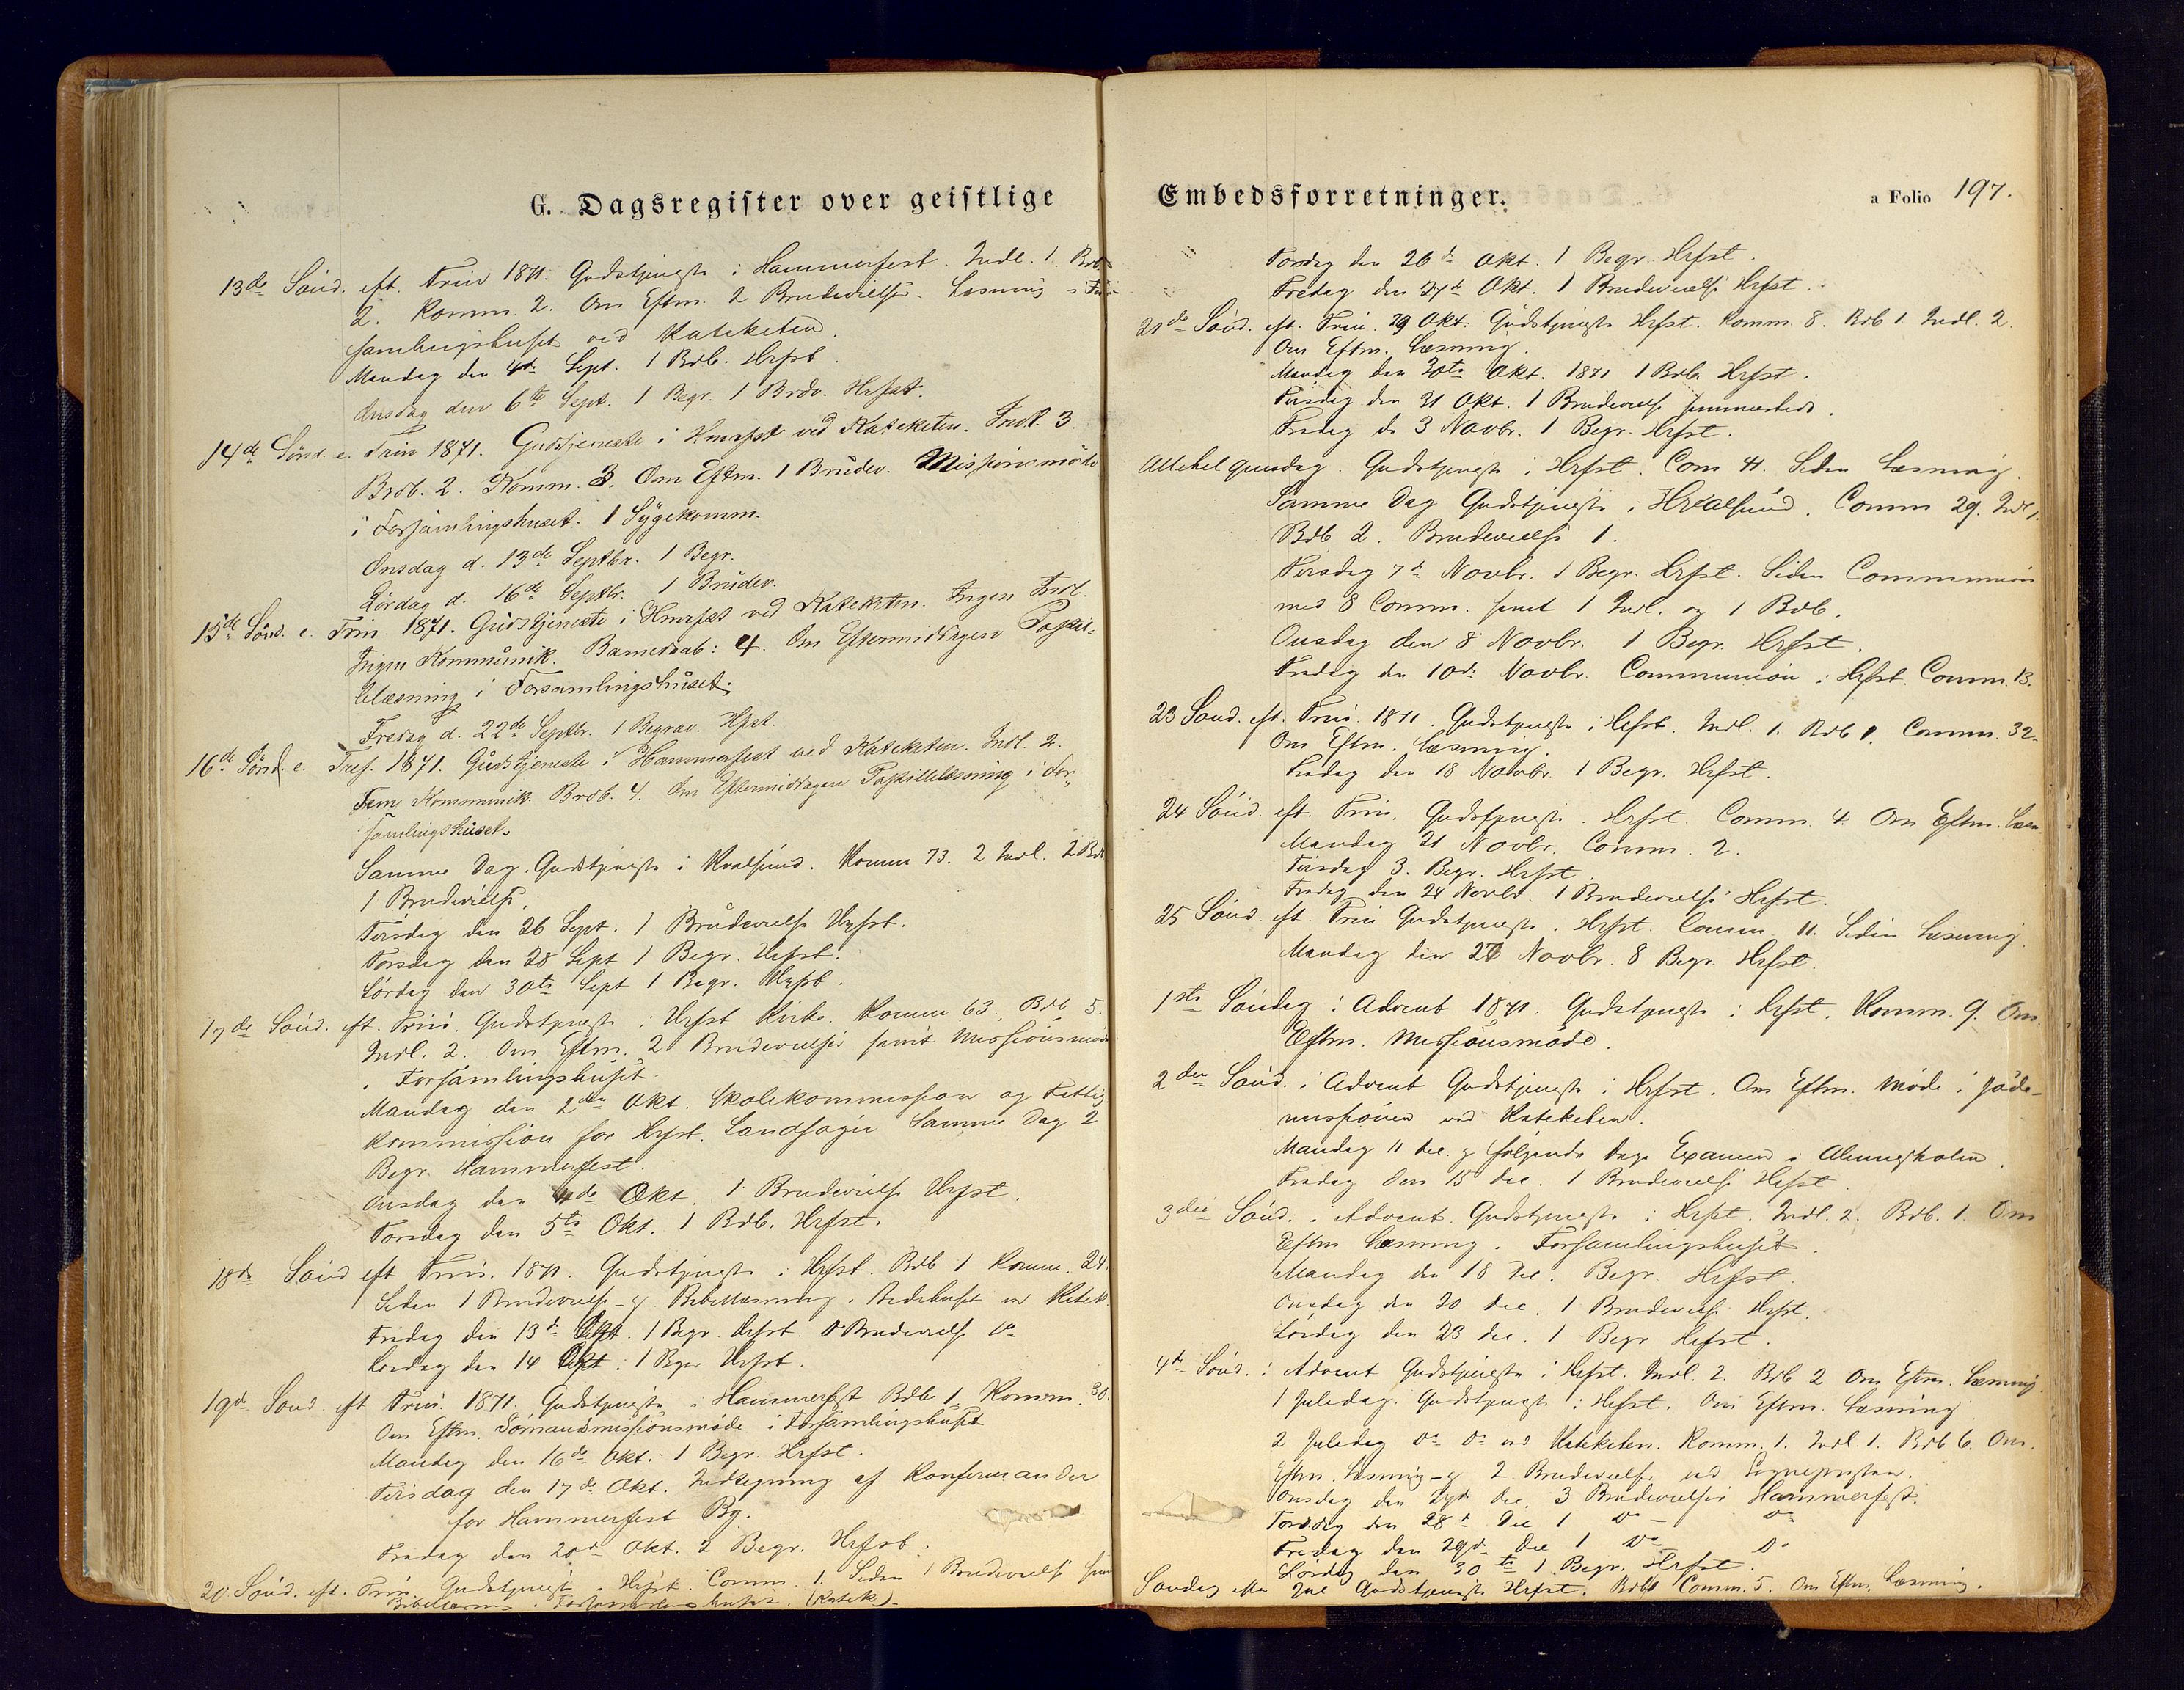 G. Dagsregister over geistlige
13de Sönd. eft. Trin 1871. Gudstjeneste i Hammerfest. Indl. 1. Brb
2. Komm. 2. Om Eftm. 2 Brudevielser. Læsning i For-
samlingshuset ved Kateketen.
Mandag den 4de Sept. 1 Brdb. Hrfst.
Onsdag den 6te Sept. 1 Begr. 1 Brdv. Hrfst.
14de Sönd. e. Trin 1871. Gudstjeneste i Hmrfst ved Kateketen. Indl. 3.
Brdb. 2. Komm. 3. Om Eftm. 1 Brudev. Missionsmöde
i Forsamlingshuset. 1 Sygekomm.
Onsdag d. 13de Septbr. 1 Begr.
Lördag d. 16de Septbr. 1 Brudev.
15de Sönd. e. Trin. 1871. Gudstjeneste i Hmrfst ved Kateketen. Ingen Indl.
Ingen Kommunik. Barnedaab: 4. Om Eftermiddagen Postil-
lelæsning i Forsamlingshuset.
Fredag d. 22de Septbr. 1 Begrav. Hfst.
16de Sönd. e. Tref. 1871. Gudstjeneste i Hammerfest ved Kateketen. Indl. 2.
Fem Kommunik. Brdb. 4. Om Eftermiddagen Postillelæsning i For-
samlingshuset.
Samme Dag Gudstjeneste i Kvalsund. Komm 73. 2 Indl. 2 Brdb
1 Brudevielse.
Tirsdag den 26 Sept. 1 Brudevielse Hrfst.
Torsdag den 28 Sept 1 Begr. Hrfst.
Lördag den 30te Sept 1 Begr. Hrfst.
17de Sönd. eft. Trin. Gudstjeneste i Hrfst Kirke. Komm 63. Brb 5.
Indl. 2. Om Eftm. 2 Brudevielser samt Missionsmöde
i Forsamlingshuset.
Mandag den 2den Okt. Skolekommission og Fattig
kommission for Hrfst. Landsogn Samme Dag 2
Begr. Hammerfest.
Onsdag den 4de Okt. 1 Brudevielse Hrfst.
Torsdag den 5te Okt. 1 Bdb. Hrfst.
18de Sönd eft Trin. 1871. Gudstjeneste i Hrfst. Bdb 1 Komm. 24.
Siden 1 Brudevielse og Bibellæsning i Bedehuset ved Katek.
Fredag den 13de Okt. 1 Begr. Hrfst. Brudevielse Do
Lördag den 14 Okt. 1 Begr Hrfst.
19de Sönd. eft Trin. 1871. Gudstjeneste i Hammerfest Bdb 1. Komm. 30.
Om Eftm. Sömandsmissionsmöde i Forsamlingshuset
Mandag den 16de Okt. 1 Begr. Hrfst.
Tirsdag den 17de Okt. Indtegning af Konfirmander
for Hammerfest By.
Fredag den 20de Okt. 2 Begr. Hrfst.
20 Sönd. eft. Trin. Gudstjeneste Hrfst. Comm. 1. Siden 1 Brudevielse samt
Bibellæsning i Forsamlingshuset. (Katek)
Embedsforretninger.
a Folio 197.
Torsdag den 26de Okt. 1 Begr. Hrfst.
Fredag den 27de Okt. 1 Brudevielse Hrfst.
21de Sönd. eft. Trin. 29 Okt. Gudstjeneste Hrfst. Komm. 8. Bdb 1. Indl. 2.
Om Eftm. Læsning.
Mandag den 30te Okt. 1871 1 Bdb. Hrfst.
Tirsdag den 31 Okt. 1 Brudevielse sammesteds.
Fredag d. 3 Novbr. 1 Begr. Hrfst.
Allehelgensdag. Gudstjeneste i Hrfst. Com 41. Siden Læsning.
Samme Dag Gudstjeneste i Kvalsund. Comm 29. Indl 1.
Bdb 2. Brudevielse 1.
Tirsdag 7de Novbr. 1 Begr. Hrfst. Siden Communion
med 8 Comm. samt 1 Indl. og 1 Bdb.
Onsdag den 8 Novbr. 1 Begr. Hrfst.
Fredag den 10de Novbr. Communion i Hrfst. Comm. 13.
23 Sönd. eft. Trin. 1871. Gudstjeneste i Hrfst. Indl. 1. Bdb 1. Comm. 32.
Om Eftm. Læsning.
Lördag den 18 Novbr. 1 Begr. Hrfst.
24 Sönd. eft. Trin. Gudstjeneste i Hrfst. Comm. 4. Om Eftm. Læsn.
Mandag 21 Novbr. Comm. 2.
Tirsdag 3. Begr. Hrfst
Fredag den 24 Novbr. 1 Brudevielse Hrfst.
25 Sönd. eft. Trin Gudstjeneste i Hrfst. Comm. 11. Siden Læsning.
Mandag den 27 Novbr. 8 Begr. Hrfst.
1ste Söndag i Advent 1871. Gudstjeneste i Hrfst. Komm. 9. Om
Eftm. Missionsmöde.
2den Sönd. i Advent Gudstjeneste i Hrfst. Om Eftm. Möde i Jöde-
missionen ved Kateketen.
Mandag 11 Dec. og fölgende Dage Examen i Almueskolen.
Fredag den 15 Dec. 1 Brudevielse Hrfst.
3die Sönd. i Advent. Gudstjeneste i Hrfst. Indl. 2. Bdb. 1. Om
Eftm Læsning i Forsamlingshuset.
Mandag den 18 Dec. Begr. Hrfst.
Onsdag den 20 Dec. 1 Brudevielse Hrfst.
Lördag den 23 Dec. 1 Begr Hrfst.
4de Sönd. i Advent Gudstjeneste i Hrfst. Indl. 2. Bdb 2 Om Eftm. Læsning.
1 Juledag. Gudstjeneste i Hrfst. Om Eftm. Læsning
2 Juledag Do Do ved Kateketen. Komm. 1. Indl. 1. Bdb 6. Om.
Eftm. Læsning og 2 Brudevielse ved Sognepresten.
Onsdag den 27de Dec. 3 Brudevielser Hammerfest.
Torsdag den 28de Dec 1 Do Do
Fredag den 29de Dec 1 Do Do
Lördag den 30te 1 Begr. Hrfst.
Söndag efter Jul Gudstjeneste Hrfst. Bdb Comm. 5. Om Eftm. Læsning.